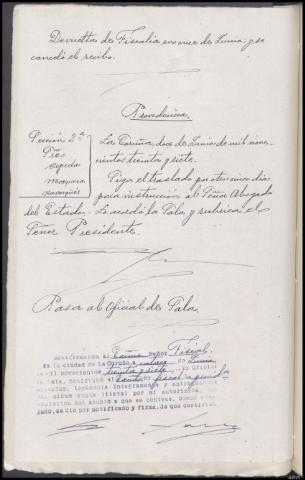 Devuelto de Fiscalía en once de Junio, y se
canceló el recibo.
Providencia.
Sección 2ª
Sres
Cepeda
Mosquera
La Coruña, doce de Junio de mil nove-
cientos treinta y siete.
Siga el traslado por otros cinco días
para instrucción al Señor Abogado
del Estado. Lo acordó la Sala y rubrica el
Señor Presidente.
Pasa al Oficial de Sala.
Notificación al Señor Fiscal
En la ciudad de La Coruña a catorce de Junio
de mil novecientos treinta y siete yo Oficial
de Sala, notifiqué al Fiscal la
anterior, leyéndola íntegramente y entregándole
en el acto copia literal por mí autorizada, con
expresión del asunto a que se contrae. Queda ente-
rado, se dio por notificado y firma, de que certifico.